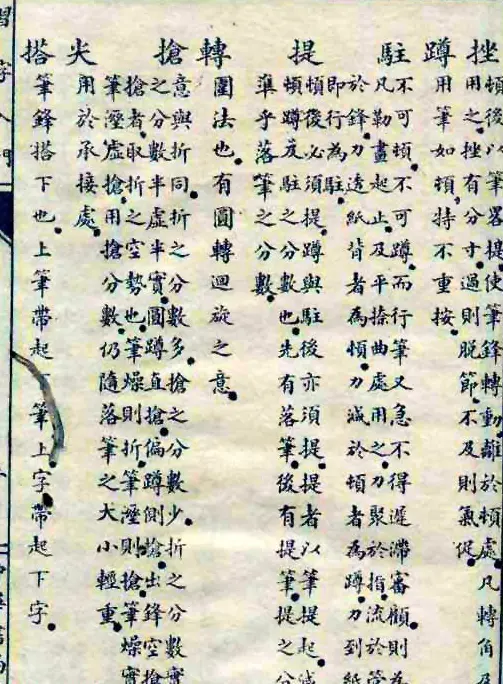 挫
頓後以筆畧提使筆鋒轉動離於頓處凡轉角及
用之挫有分寸過則脫節不及則氣促
蹲
用筆如頓持不重按
駐
不可頓不可蹲而行筆又急不得遲滯審顧則為
凡勒畫起止及平捺曲處用之力聚於指流於管
於鋒力透紙背者為頓力減於頓者為蹲力到紙
即行為駐
提
頓後必須提蹲與駐後亦須提提者以筆提起減
頓蹲及駐之分數也先有落筆後有提筆提之分
凖乎落筆之分數
轉
圜法也有圓轉迴旋之意
搶
意與折同折之分數多搶之分數少折之分數實
之分數半虛半實圓蹲直搶偏蹲側搶出鋒空搶
搶者取折之空勢也筆燥則折筆溼則搶筆燥實
筆溼虛搶用搶分數仍隨落筆之大小輕重
尖
用於承接處
搭
筆鋒搭下也上筆帶起下筆上字帶起下字
習字入門